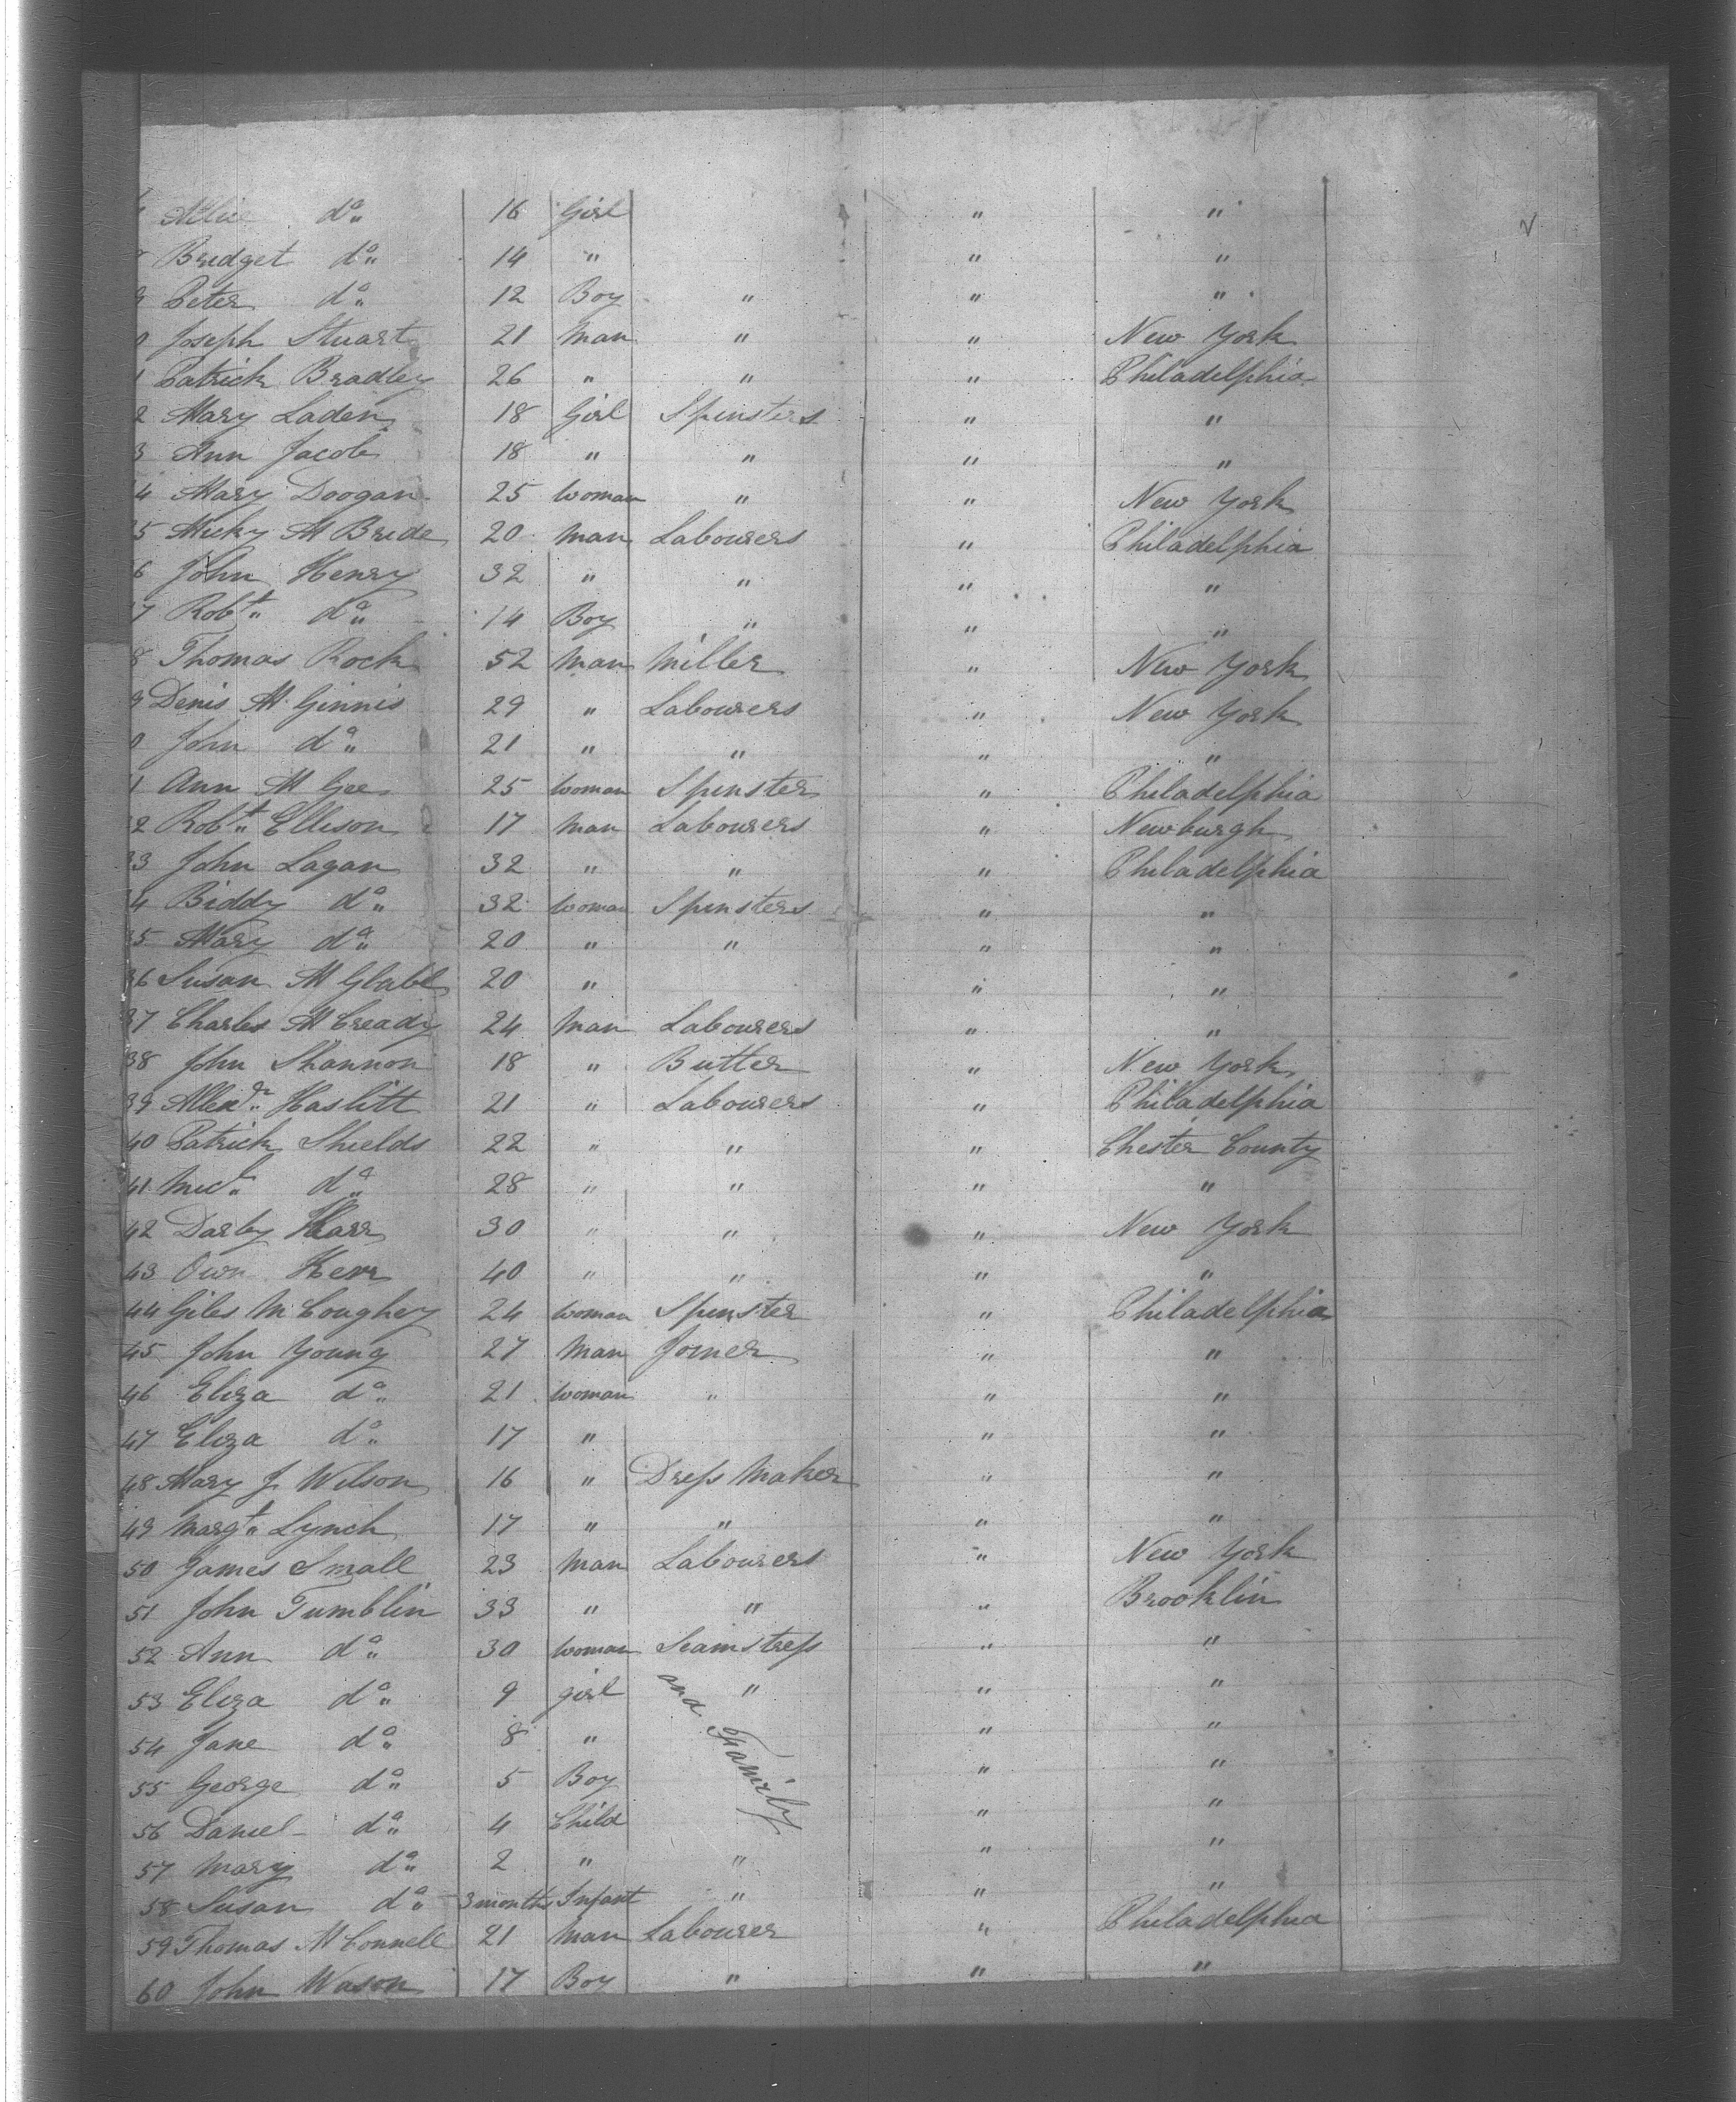 Alice do 16 Girl " "
Bridget do 14 " " "
9 Peter do 12 Boy " " "
0 Joseph Stuart 21 Man " " New York
1 Patrick Bradley 26 " " " Philadelphia
2 Mary Laden 18 Girl Spinsters " "
3 Ann Jacob 18 " " " "
4 Mary Doogan 25 Woman " " New York
5 Micky McBride 20 Man Labourers " Philadelphia
6 John Henry 32 " " " "
7 Robt do 14 Boy " " "
8 Thomas Rock 52 Man Miller " New York
9 Denis McGinnis 29 " Labourers " New York
0 John do 21 " " " "
1 Ann McGee 25 Woman Spinster " Philadelphia
2 Robt Ellison 17 Man Labourers " Newburgh
33 John Lagan 32 " " " Philadelphia
4 Biddy do 32 Woman Spinsters " "
35 Mary do 20 " " " "
36 Susan 20 " " "
37 Charles McCready 24 Man Labourers " "
38 John Shannon 18 " Butter " New York
39 Haslitt 21 " Labourers " Philadelphia
40 Patrick Shields 22 " " " Chester County
41 Micl do 28 " " " "
42 Darby 30 " " " New York
43 Own Kerr 40 " " " "
44 Giles McCoughey 24 Woman Spinster " Philadelphia
45 John Young 27 Man Joiner " "
46 Eliza do 21 Woman " " "
47 Eliza do 17 " " "
48 Mary J Wilson 16 " Dress Maker " "
49 Margt Lynch 17 " " " "
50 James Small 23 Man Labourers " New York
51 John Tumblin 33 " " " Brooklin
52 Ann do 30 Woman Seamstress " "
53 Eliza do 9 girl " " "
and Family
54 Jane do 8 " " "
55 George do 5 Boy " "
56 Daniel do 4 Child " "
57 Mary do 2 " " " "
58 Susan do 3 months Infant " " "
59 Thomas McConnell 21 Man Labourer " Philadelphia
60 John Wason 17 Boy " " "